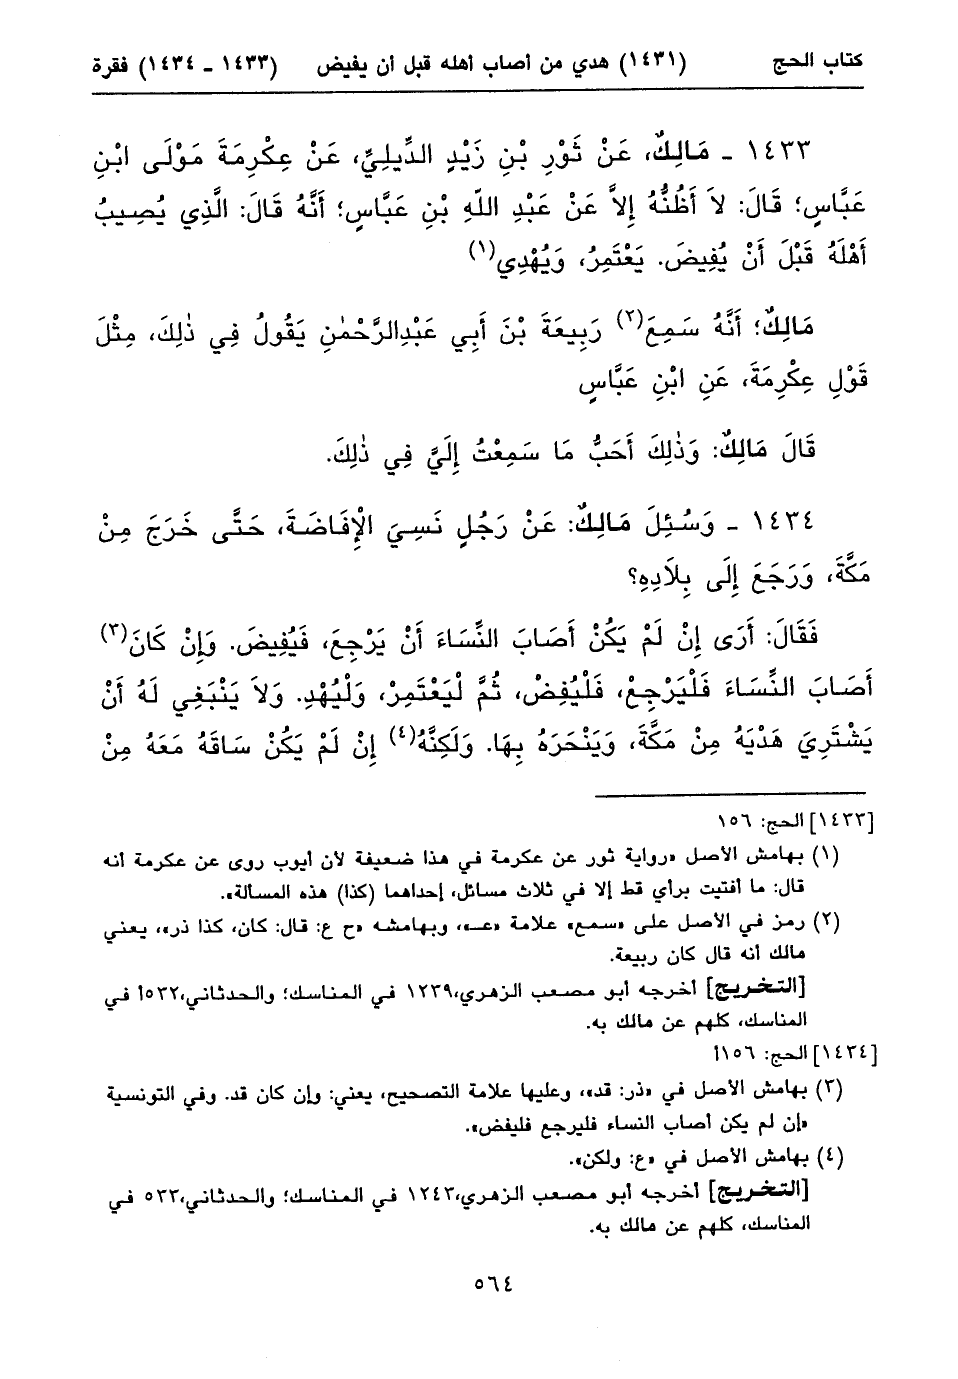 كتاب الحج (١٤٣١) هدي من أصاب أهله قبل أن يفيض (١٤٣٣ ـ ١٤٣٤) فقرة
١٤٣٣ ـ مَالِكٌ، عَنْ ثَوْرِ بْنِ زَيْدٍ الدِّيلِيِّ، عَنْ عِكْرِمَةَ مَوْلَى ابْنِ
عَبَّاسٍ؛ قَالَ: لاَ أَظُنُّهُ إِلاَّ عَنْ عَبْدِ اللّهِ بْنِ عَبَّاسٍ؛ أَنَّهُ قَالَ: الَّذِي يُصِيبُ
أَهْلَهُ قَبْلَ أَنْ يُفِيضَ. يَعْتَمِرُ، وَيُهْدِي(١)
مَالِكٌ؛ أَنَّهُ سَمِعَ(٢) رَبِيعَةَ بْنَ أَبِي عَبْدِالرَّحْمٰنِ يَقُولُ فِي ذٰلِكَ، مِثْلَ
قَوْلِ عِكْرِمَةَ، عَنِ ابْنِ عَبَّاسٍ
قَالَ مَالِكٌ: وَذٰلِكَ أَحَبُّ مَا سَمِعْتُ إِلَيَّ فِي ذٰلِكَ.
١٤٣٤ ـ وَسُئِلَ مَالِكٌ: عَنْ رَجُلٍ نَسِيَ الْإِفَاضَةَ، حَتَّى خَرَجَ مِنْ
مَكَّةَ، وَرَجَعَ إِلَى بِلَادِهِ؟
فَقَالَ: أَرَى إِنْ لَمْ يَكُنْ أَصَابَ النِّسَاءَ أَنْ يَرْجِعَ، فَيُفِيضَ. وَإِنْ كَانَ(٣)
أَصَابَ النِّسَاءَ فَلْيَرْجِعْ، فَلْيُفِضْ، ثُمَّ لْيَعْتَمِرْ، وَلْيُهْدِ. وَلاَ يَنْبَغِي لَهُ أَنْ
يَشْتَرِيَ هَدْيَهُ مِنْ مَكَّةَ، وَيَنْحَرَهُ بِهَا. وَلَكِنَّهُ(٤) إِنْ لَمْ يَكُنْ سَاقَهُ مَعَهُ مِنْ
[١٤٣٣] الحج: ١٥٦
(١) بهامش الأصل «رواية ثور عن عكرمة في هذا ضعيفة لأن أيوب روى عن عكرمة أنه
قال: ما أفتيت برأي قط إلا في ثلاث مسائل، إحداهما (كذا) هذه المسألة».
(٢) رمز في الأصل على «سمع» علامة «عـ»، وبهامشه «ح ع: قال: كان، كذا ذر»، يعني
مالك أنه قال كان ربيعة.
[التخريج] أخرجه أبو مصعب الزهري،١٢٣٩ في المناسك؛ والحدثاني،٥٣٢أ في
المناسك، كلهم عن مالك به.
[١٤٣٤] الحج: ١٥٦أ
(٣) بهامش الأصل في «ذر: قد»، وعليها علامة التصحيح، يعني: وإن كان قد. وفي التونسية
«إن لم يكن أصاب النساء فليرجع فليفض».
(٤) بهامش الأصل في «ع: ولكن».
[التخريج] أخرجه أبو مصعب الزهري،١٢٤٣ في المناسك؛ والحدثاني،٥٣٣ في
المناسك، كلهم عن مالك به.
٥٦٤